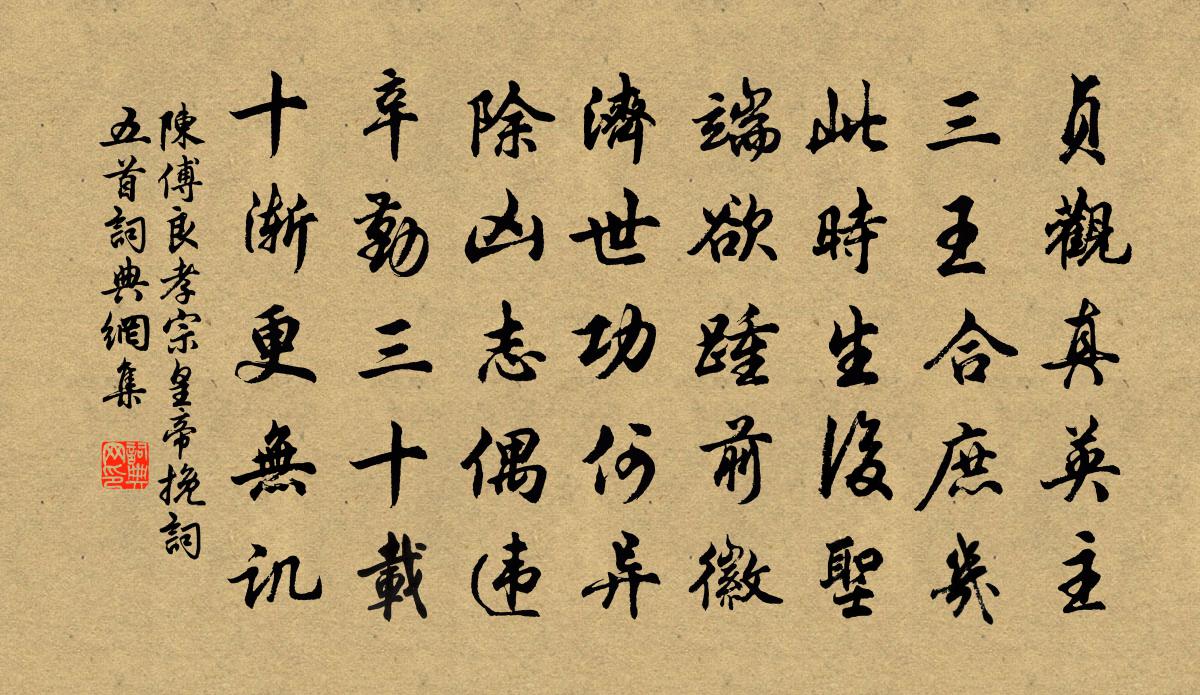 貞觀真英主
三王合庶幾
此時生後聖
端欲踵前徽
濟世功何异
除凶志偶违
辛勤三十載
十渐更無讥
陳傅良孝宗皇帝挽詞
五首詞典網集
詞典
网印